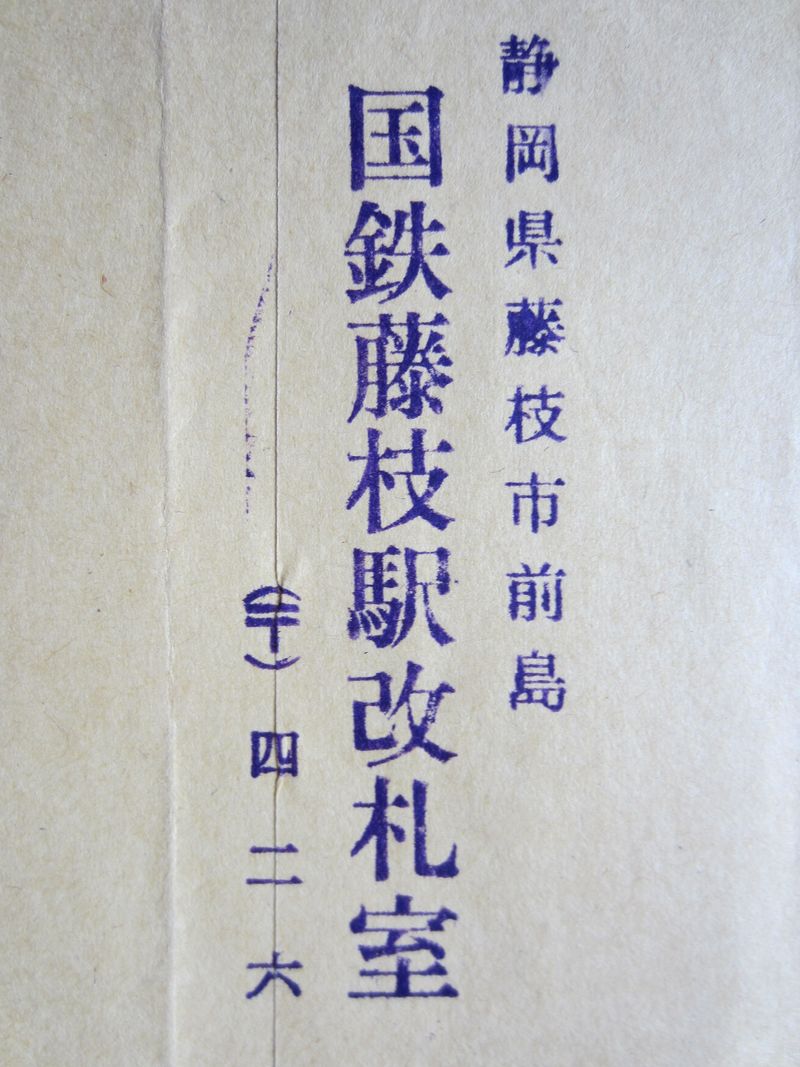 静岡県藤枝市前島
国鉄藤枝駅改札室
(〒)四二六